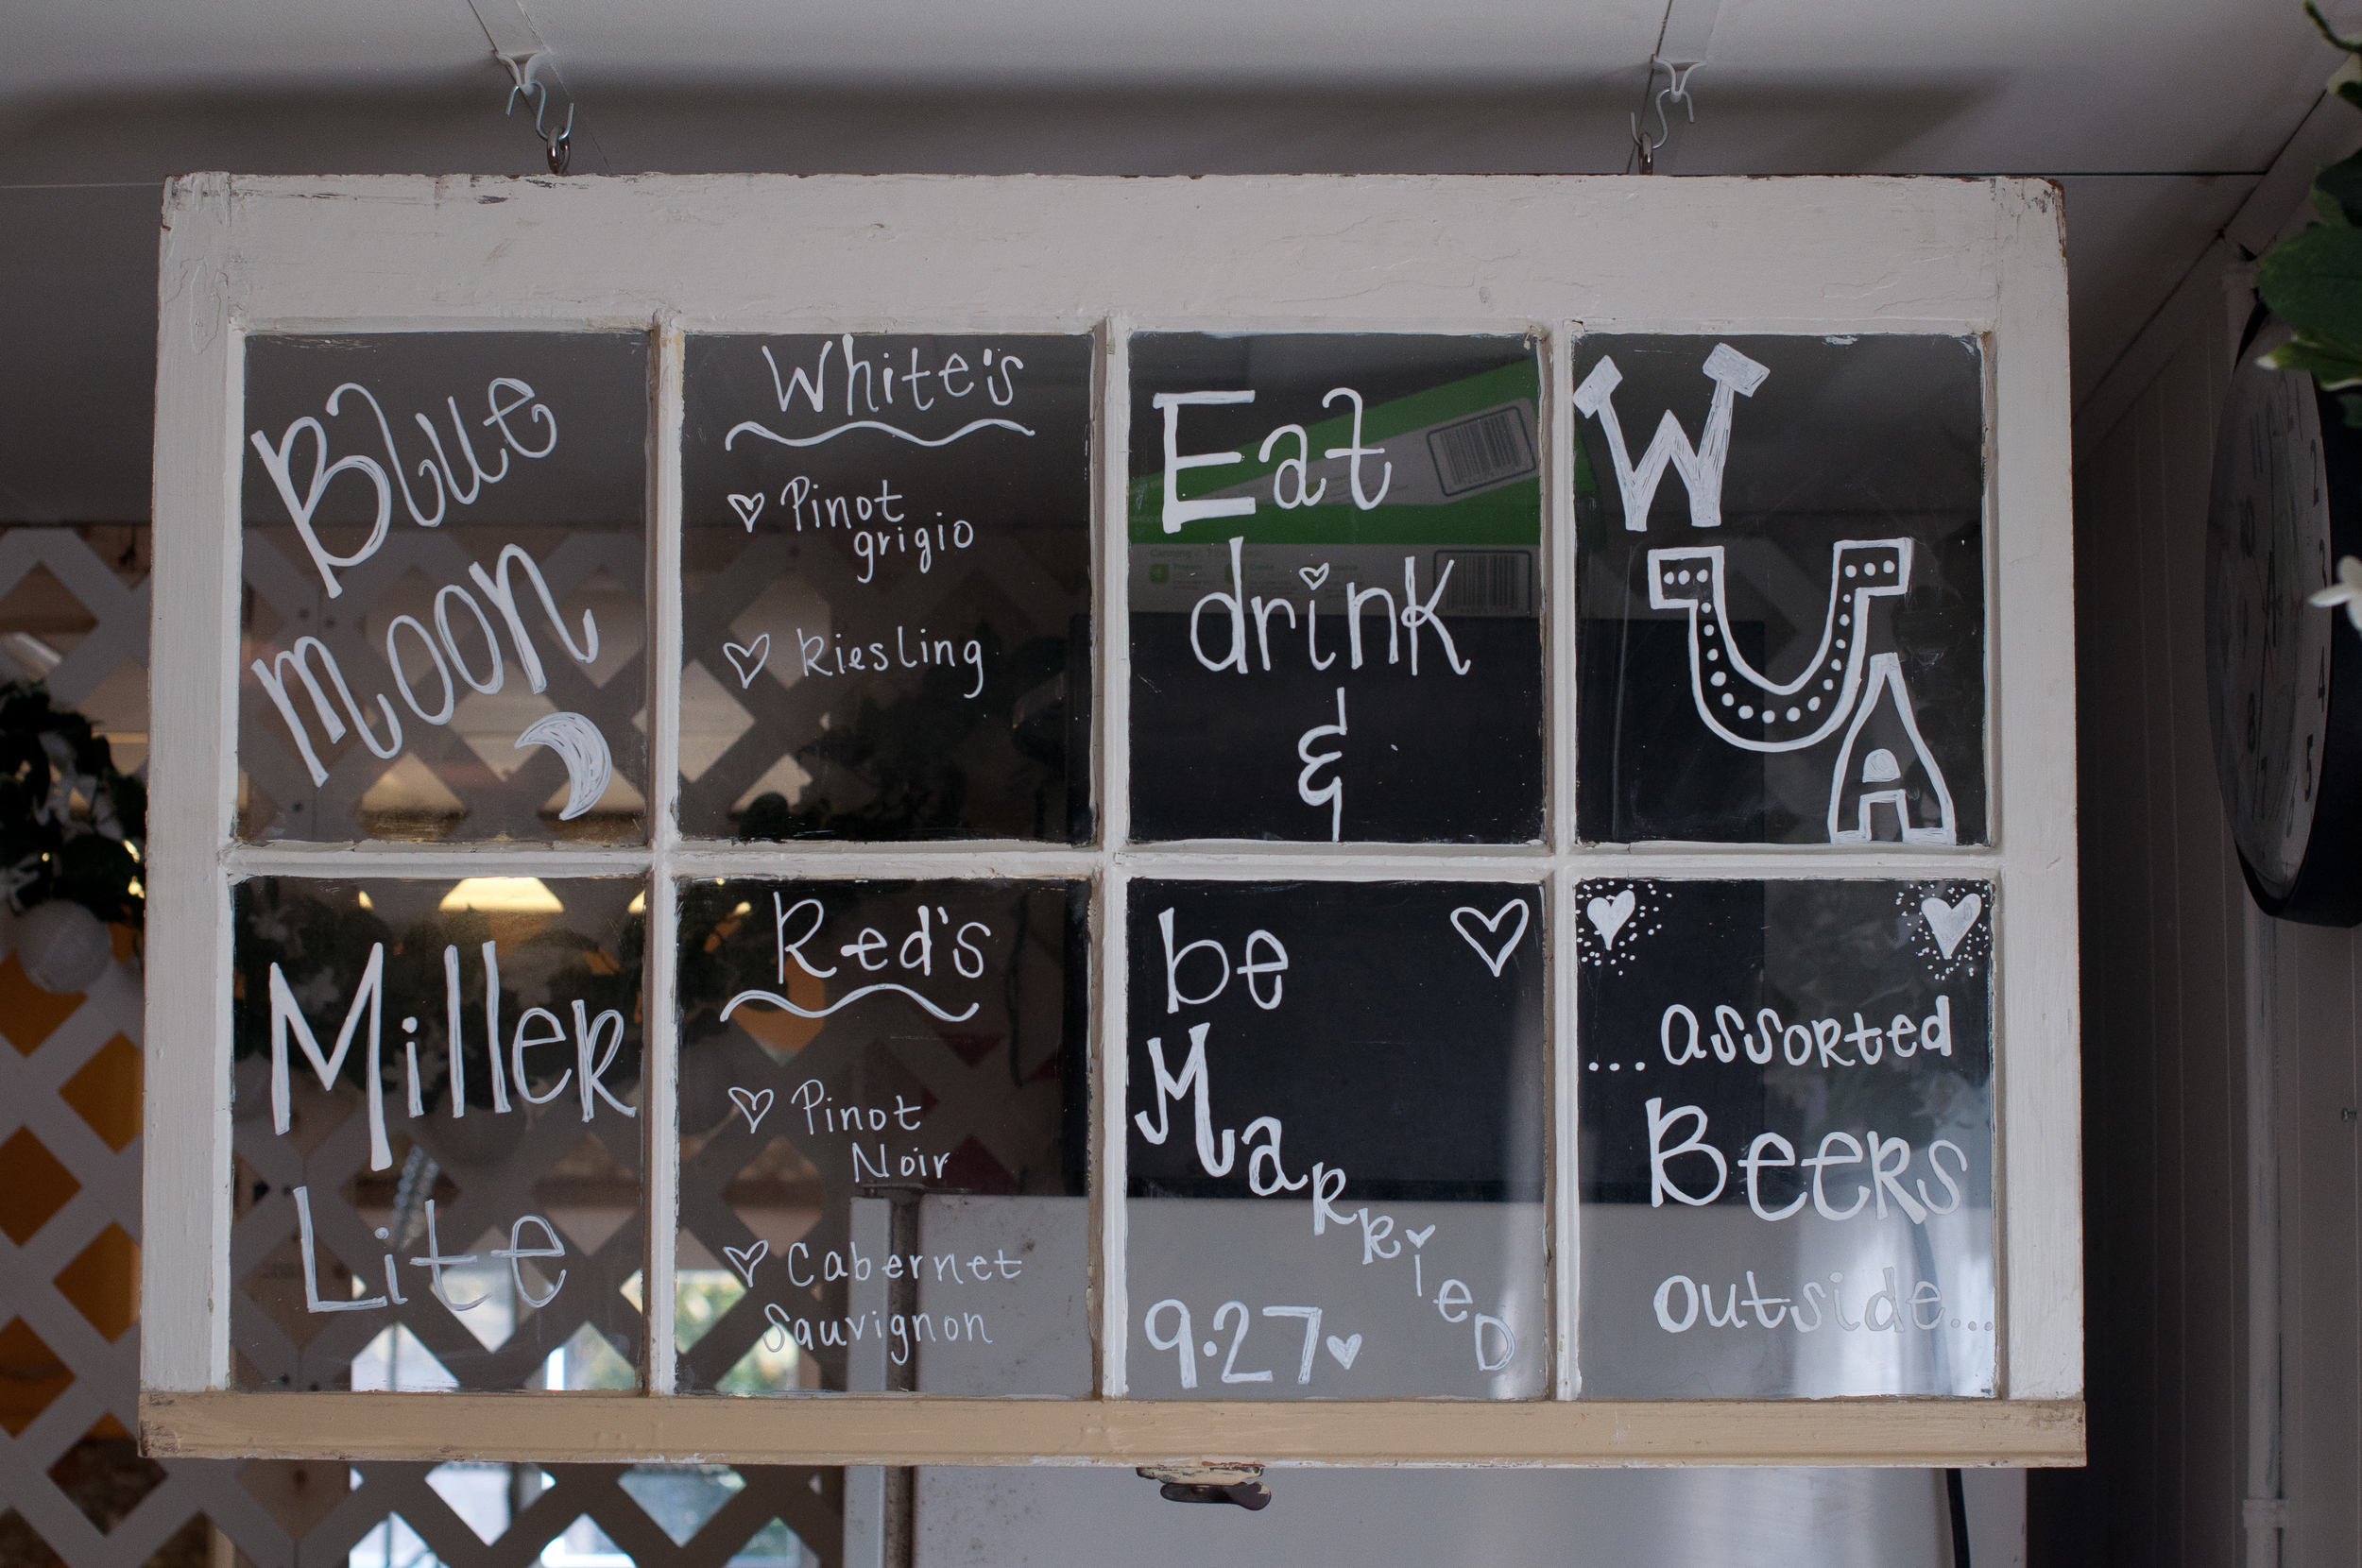 Blue
moon
White's
Pinot
grigio
Riesling
Eat
drink
&
W
U
A
Miller
Lite
Red's
Pinot
Noir
Cabernet
Sauvignon
be
Married
9.27
...assorted
Beers
outside...